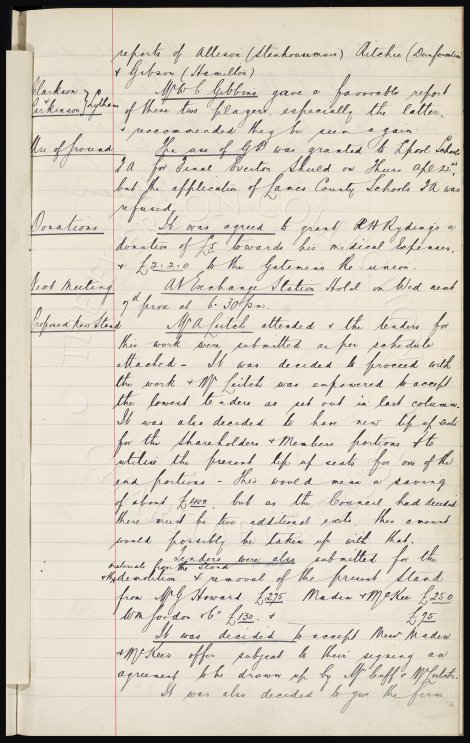 reports of Allison (Stenhousemuir) Aitchie (Dunfermline)
& Gibson (Hamilton)
Clarkson
Parkinson } Lytham
Mr W C Gibbins gave a favorable report
of these two players especially the latter.
& recommended they be seen again
Use of Ground
The use of G.P. was granted to L'pool Schools
F A for Final Everton Shield on Thurs Apl 22nd,
but the application of Lancs County Schools F A was
refused.
Donations
It was agreed to grant R H Rydings a
donation of £5 towards his medical Expenses,
& £2.2.0 to the Gatemens Re-union.
Next Meeting
At Exchange Station Hotel on Wed next
7th prox at 6.30 pm.
Proposed New Stand
Mr A Leitch attended & the tenders for
this work were submitted as per schedule
attached - It was decided to proceed with
the work & Mr Leitch was empowered to accept
the lowest tenders as set out in last column.
It was also decided to have new tip up seats
for the Shareholders & Members portions & to
utilise the present tip up seats for one of the
end portions - This would mean a saving
of about £400, but as the Council had decided
there must be two additional exits, this amount
would possibly be taken up with that.
Tenders were also submitted for the
materials from the Stand
& the demolition & removal of the present Stand
from Mr G Howard £275 Maden & McKee £250
Wm Gordon & Co £130 & £75
It was decided to accept Messrs Maden
& McKees offer subject to their signing an
agreement to be drawn up by Mr Cuff & Mr Leitch.
It was also decided to give the firm